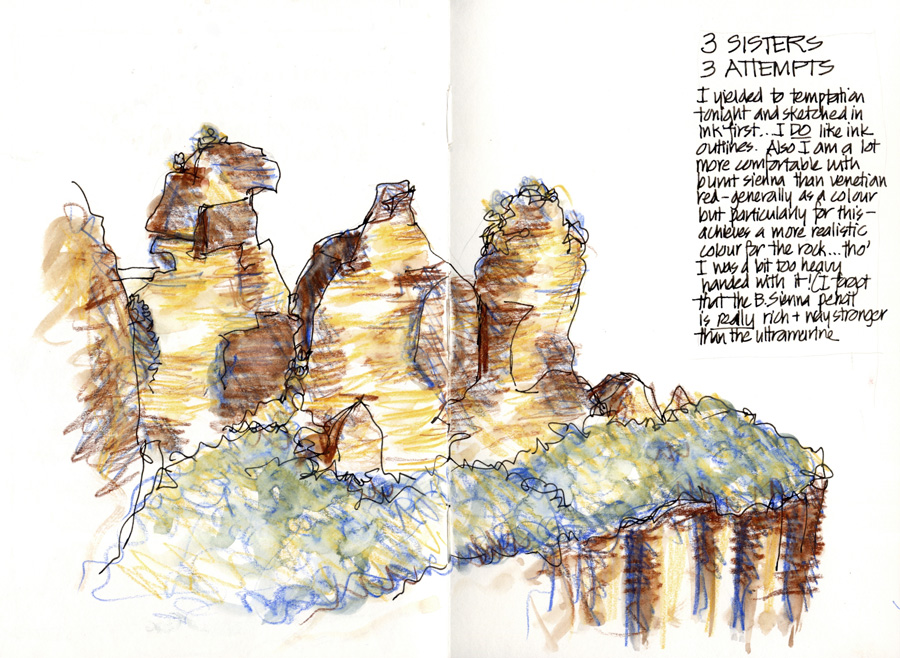 3 SISTERS
3 ATTEMPTS
I yielded to temptation
tonight and sketched in
ink first... I DO like ink
outlines. Also I am a lot
more comfortable with
burnt sienna than venetian
red - generally as a colour
but particularly for this -
achieves a more realistic
colour for the rock... tho'
I was a bit too heavy
handed with it! (I forgot
that the B. Sienna pencil
is really rich + way stronger
than the ultramarine